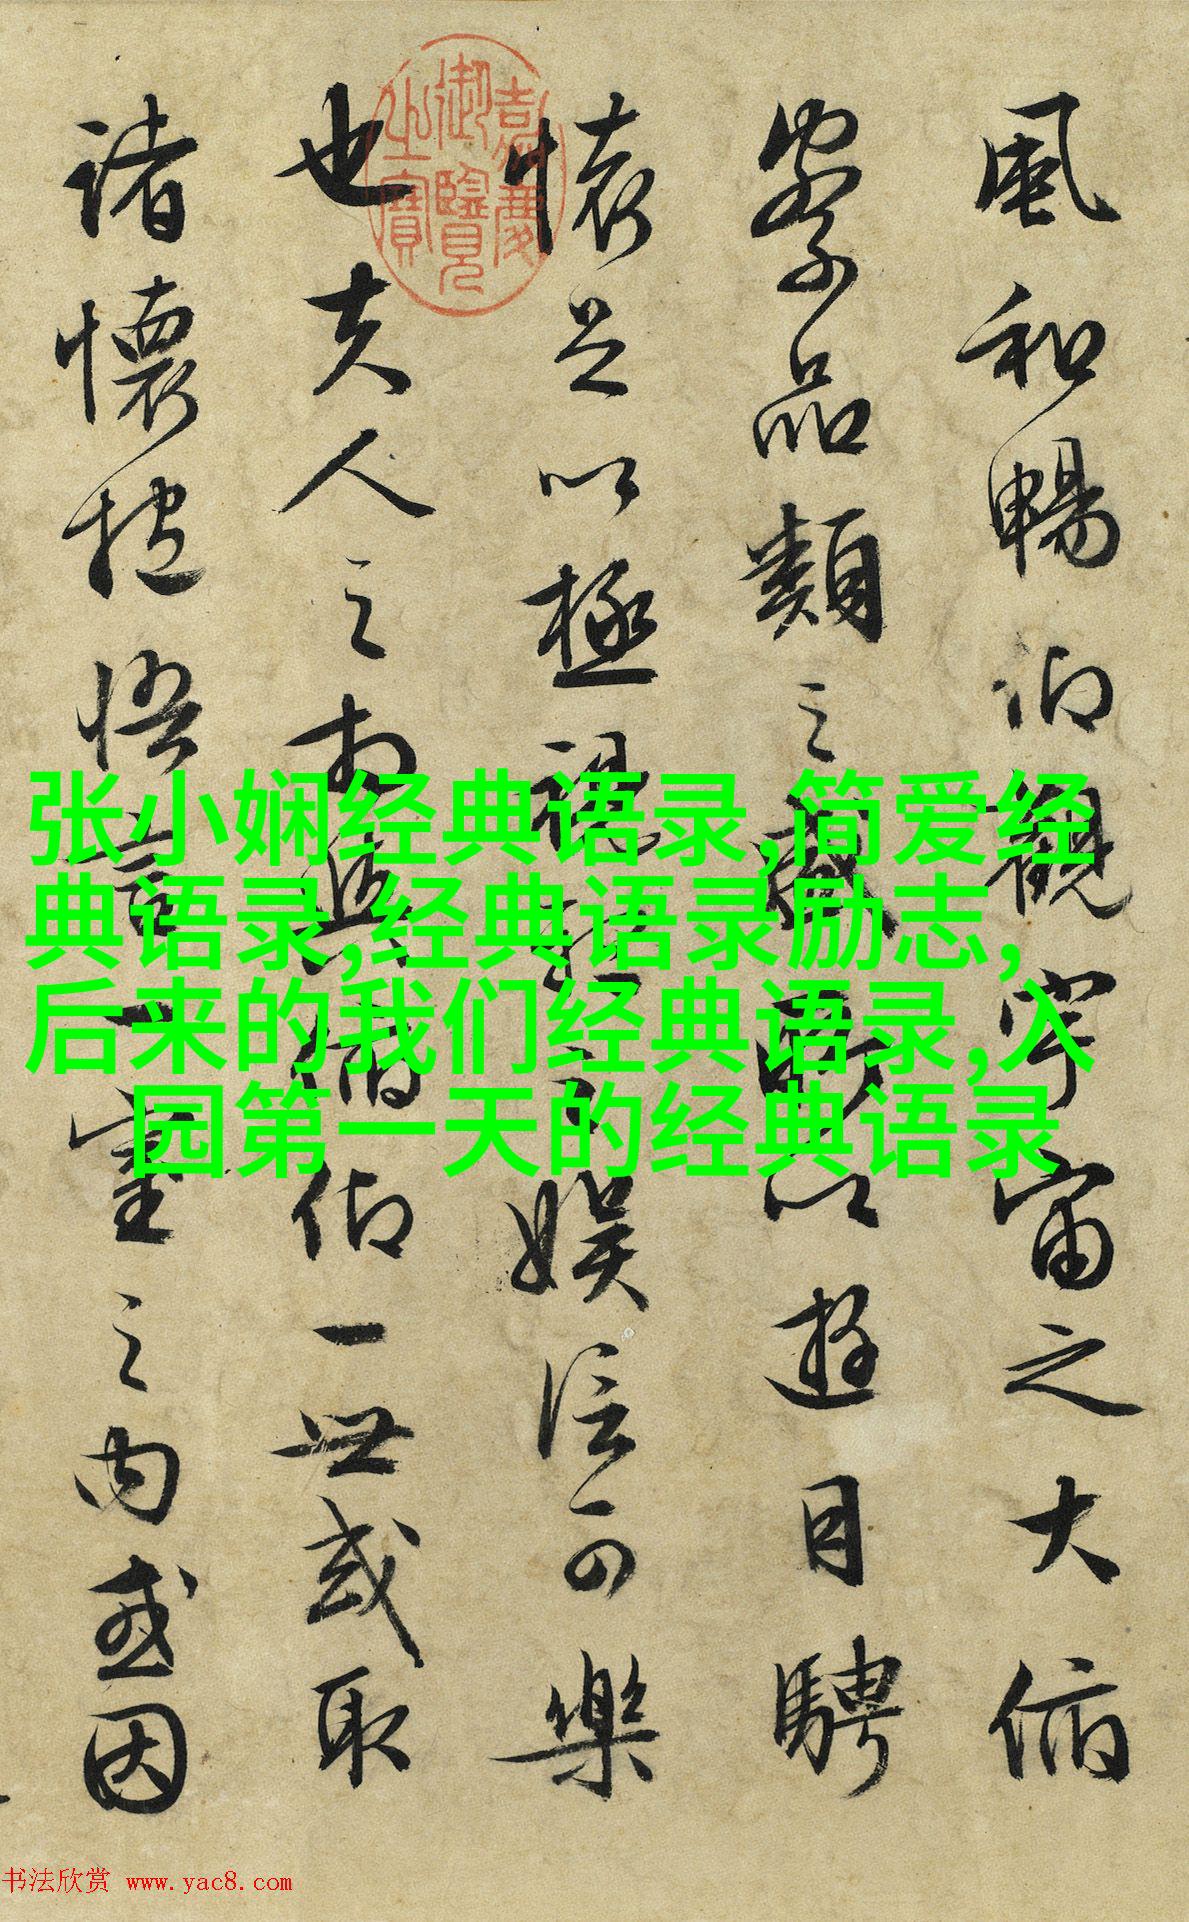 風和暢仰觀宇宙之大俯
察品類之盛所以遊目騁
懷足以極視聽之娛信可樂
也夫人之相與俯仰一世或取
諸懷抱悟言一室之內或因
嘉慶御覽之寶
张小娴经典语录,简爱经
典语录,经典语录励志,
后来的我们经典语录,入
园第一天的经典语录
书法欣赏 www.yac8.com